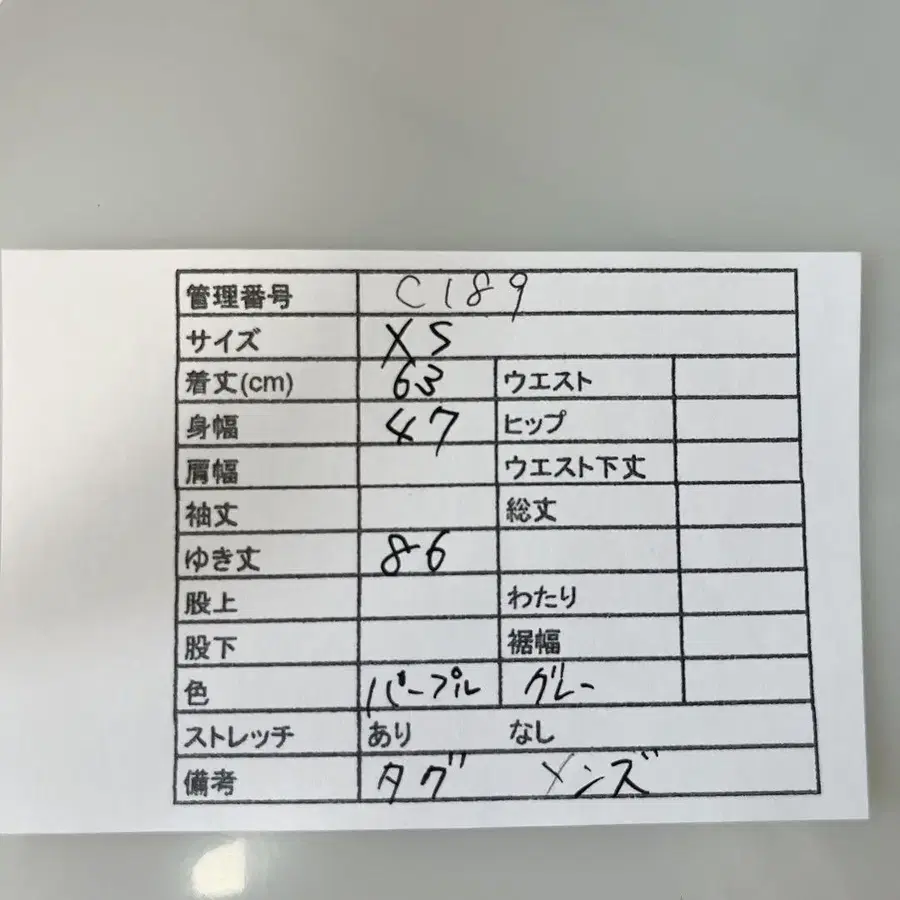 管理番号 C189
サイズ XS
着丈(cm) 63 ウエスト
身幅 47 ヒップ
肩幅 ウエスト下丈
袖丈 総丈
ゆき丈 86
股上 わたり
股下 裾幅
色 パープル グレー
ストレッチ あり なし
備考 タグ メンズ